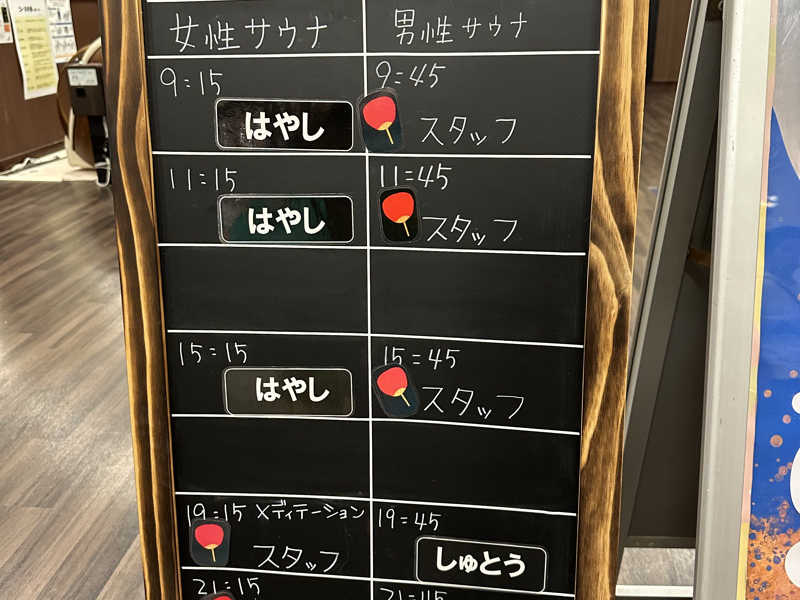 女性サウナ 男性サウナ
9:15 9:45
はやし スタッフ
11:15 11:45
はやし スタッフ
15:15 15:45
はやし スタッフ
19:15 メディテーション 19:45
スタッフ しゅとう
21:15 21:45